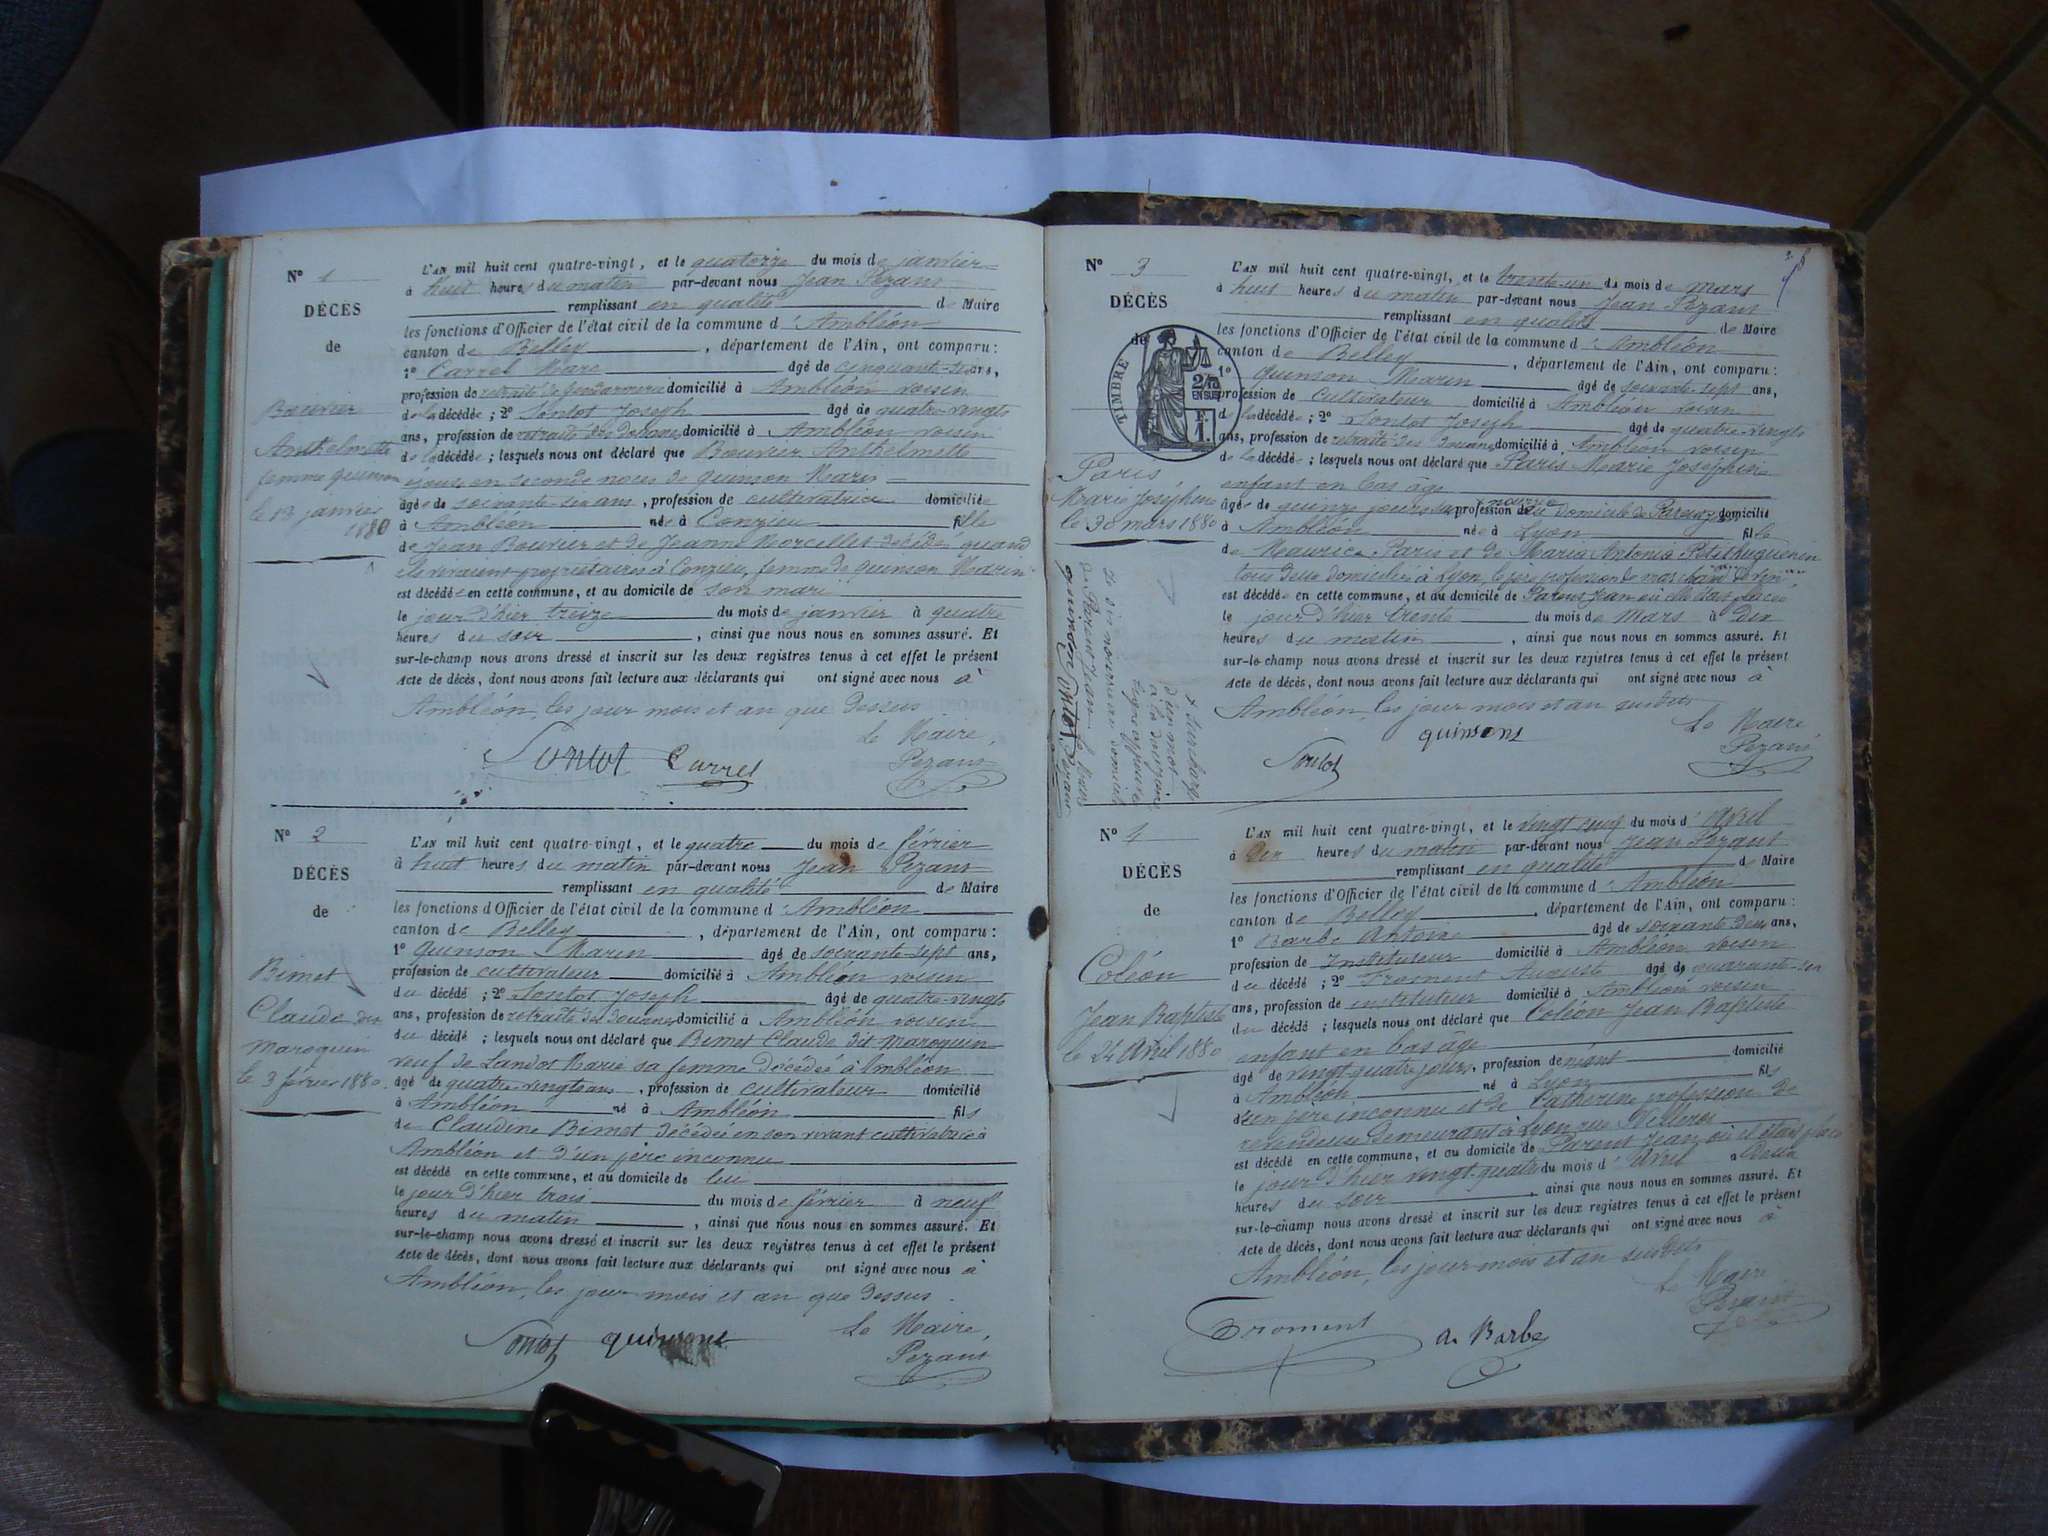 N° 1
DÉCÈS
de
Bouvier
Anthelmette
femme quinson
le 13 janvier
1880
L'AN mil huit cent quatre-vingt, et le quatorze du mois de janvier
à huit heures du matin par-devant nous Jean Pezant
remplissant en qualité de Maire
les fonctions d'Officier de l'état civil de la commune d'Ambléon
canton de Belley, département de l'Ain, ont comparu :
1° Carrel Marc âgé de cinquante-six ans,
profession de retraité de Gendarmerie domicilié à Ambléon voisin
de la décédée ; 2° Sontot Joseph âgé de quatre-vingts
ans, profession de retraité des douanes domicilié à Ambléon voisin
de la décédée ; lesquels nous ont déclaré que Bouvier Anthelmette
épouse en seconde noces de quinson Marin
âgée de soixante-six ans, profession de cultivatrice domiciliée
à Ambléon née à Conzieu fille
de Jean Bouvier et de Jeanne Morcelles décédés quand
ils vivaient propriétaires à Conzieu, femme de quinson Marin
est décédée en cette commune, et au domicile de son mari
le jour d'hier treize du mois de janvier à quatre
heures du soir, ainsi que nous nous en sommes assuré. Et
sur-le-champ nous avons dressé et inscrit sur les deux registres tenus à cet effet le présent
Acte de décès, dont nous avons fait lecture aux déclarants qui ont signé avec nous à
Ambléon, les jour mois et an que dessus
Le Maire,
Sontot Carrel Pezant
N° 2
DÉCÈS
de
Bimet
Claude dit
maroquin
le 3 février 1880
L'AN mil huit cent quatre-vingt, et le quatre du mois de février
à huit heures du matin par-devant nous Jean Pezant
remplissant en qualité de Maire
les fonctions d'Officier de l'état civil de la commune d'Ambléon
canton de Belley, département de l'Ain, ont comparu :
1° Quinson Marin âgé de soixante-sept ans,
profession de cultivateur domicilié à Ambléon voisin
du décédé ; 2° Sontot Joseph âgé de quatre-vingts
ans, profession de retraité des douanes domicilié à Ambléon voisin
du décédé ; lesquels nous ont déclaré que Bimet Claude dit maroquin
veuf de Landot Marie sa femme décédée à Ambléon
âgé de quatre-vingts ans, profession de cultivateur domicilié
à Ambléon né à Ambléon fils
de Claudine Bimet décédée en son vivant cultivatrice à
Ambléon et d'un père inconnu
est décédé en cette commune, et au domicile de lui
le jour d'hier trois du mois de février à neuf
heures du matin, ainsi que nous nous en sommes assuré. Et
sur-le-champ nous avons dressé et inscrit sur les deux registres tenus à cet effet le présent
Acte de décès, dont nous avons fait lecture aux déclarants qui ont signé avec nous à
Ambléon, les jour mois et an que dessus.
Le Maire,
Sontot quinsons Pezant
N° 3
DÉCÈS
de
TIMBRE
2/10
EN SUS
F.
1.
Paris
Marie Joséphine
le 30 mars 1880
L'AN mil huit cent quatre-vingt, et le trente-un du mois de mars
à huit heures du matin par-devant nous Jean Pezant
remplissant en qualité de Maire
les fonctions d'Officier de l'état civil de la commune d'Ambléon
canton de Belley, département de l'Ain, ont comparu :
1° Quinson Marin âgé de soixante-sept ans,
profession de cultivateur domicilié à Ambléon voisin
de la décédée ; 2° Sontot Joseph âgé de quatre-vingts
ans, profession de retraité des douanes domicilié à Ambléon voisin
de la décédée ; lesquels nous ont déclaré que Paris Marie Joséphine
enfant en bas âge
âgée de quinze jours profession de nourrie au domicile de Parent domiciliée
à Ambléon née à Lyon fille
de Maurice Paris et de Maria Antonia Petithuguenin
tous deux domiciliés à Lyon, le père profession de marchand de vin
est décédée en cette commune, et au domicile de Parent Jean où elle était placée
le jour d'hier trente du mois de Mars à dix
heures du matin, ainsi que nous nous en sommes assuré. Et
sur-le-champ nous avons dressé et inscrit sur les deux registres tenus à cet effet le présent
Acte de décès, dont nous avons fait lecture aux déclarants qui ont signé avec nous à
Ambléon, les jour mois et an susdits
Le Maire
quinsons
Sontot Pezant
+ surcharge
d'un mot
à la douzième
ligne approuvée
domicile
de Parent Jean le Maire
quinson Sontot Pezant
N° 4
DÉCÈS
de
Coléon
Jean Baptiste
le 24 Avril 1880
L'AN mil huit cent quatre-vingt, et le vingt cinq du mois d'Avril
à dix heures du matin par-devant nous Jean Pezant
remplissant en qualité de Maire
les fonctions d'Officier de l'état civil de la commune d'Ambléon
canton de Belley, département de l'Ain, ont comparu :
1° Barbe Antoine âgé de soixante deux ans,
profession de Instituteur domicilié à Ambléon voisin
du décédé ; 2° Froment Auguste âgé de quarante-six
ans, profession de instituteur domicilié à Ambléon voisin
du décédé ; lesquels nous ont déclaré que Coléon Jean Baptiste
enfant en bas âge
âgé de vingt-quatre jours, profession de néant domicilié
à Ambléon né à Lyon fils
d'un père inconnu et de Catherine profession de
revendeuse demeurant à Lyon rue
est décédé en cette commune, et au domicile de Parent Jean où il était placé
le jour d'hier vingt-quatre du mois d'Avril à
heures du soir, ainsi que nous nous en sommes assuré. Et
sur-le-champ nous avons dressé et inscrit sur les deux registres tenus à cet effet le présent
Acte de décès, dont nous avons fait lecture aux déclarants qui ont signé avec nous à
Ambléon, les jour mois et an susdits
Le Maire
Pezant
Froment a. Barbe